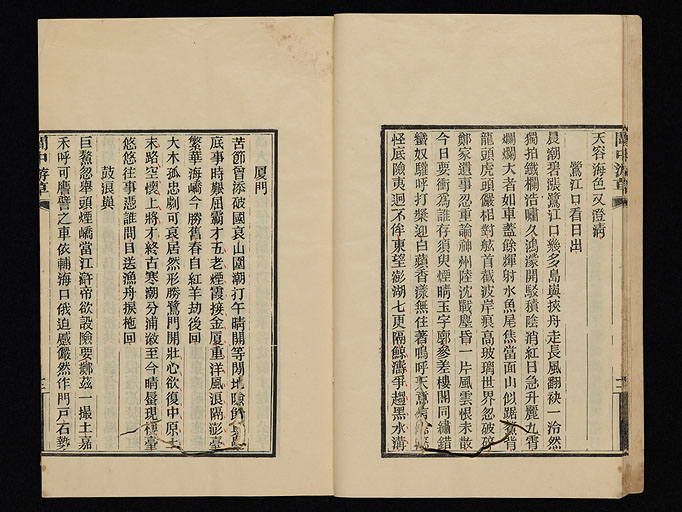 天容海色又澄清
鷺江口看日出
晨潮碧漲鷺江口幾多島與挾舟走長風翻袂一泠然
獨拍鐵欄浩嘯久鴻濛開駁積陰消紅日急升麗九霄
爛爛大者如車蓋餘煇射水魚尾焦當面山似踞鰲背
龍頭虎頭儼相對舷首截波岸痕高玻璃世界忽破碎
鄭家遺事忍重論神州陸沈戰塵昏一片風雲恨未散
今日要衝為誰存須臾煙晴玉宇廓參差樓閣同繡錯
蠻奴驩呼打槳迎白蘋香漾無住著嗚呼天意
怪底險夷迥不侔東望澎湖七更隔鯨濤爭趨黑水溝
閩中游草
二
廈門
苦節曾添破國哀山圍潮打午晴開等閒地
底事時艱屈霸才五老煙霞接金廈重洋風浪隔澎臺
繁華海嶠今勝舊春自紅羊劫後回
大木孤忠劇可哀居然形勝鷺門開壯心欲復中原土
末路空懷上將才終古寒潮分浦漵至今晴蜃現樓臺
悠悠往事憑誰問目送漁舟捩柁回
鼓浪嶼
巨鰲忽舉頭煙嶠當江滸帝欲設險要鄉茲一撮土嘉
禾呼可譍譬之車依輔海口俄迫蹙儼然作門戶石勢
閩中游草
三